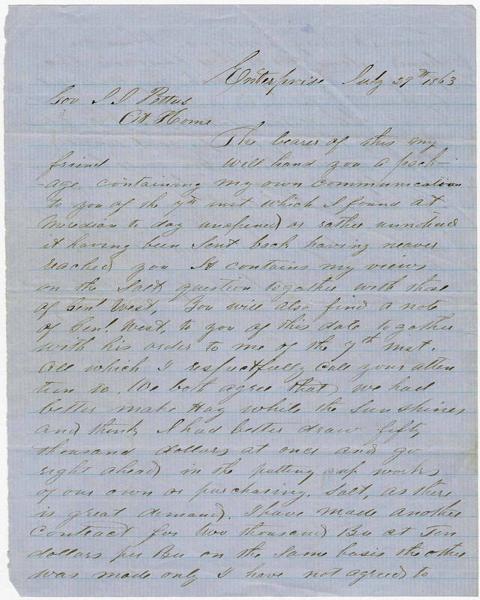 Enterprise July 29th 1863
Gov J J Pettus
At Home
The bearer of this my
friend will hand you a pack-
-age, containing my own communication
to you of the 7th inst which I found at
Meridian to day unopened or rather unnoticed
it having been sent back having never
reached you It contains my views
on the Salt question together with those
of Genl West, You will also find a note
of Genl. West to you of this date together
with his order to me of the 7th inst.
All which I respectfully call your atten
tion to. We both agree that we had
better make Hay while the Sun shines
and think I had better draw fifty
thousand dollars at once and go
right ahead in the putting up works
of our own or purchasing Salt, as there
is great demand. I have made another
contract for Two thousand Bu at Ten
dollars per Bu on the same basis the other
was made only I have not agreed to